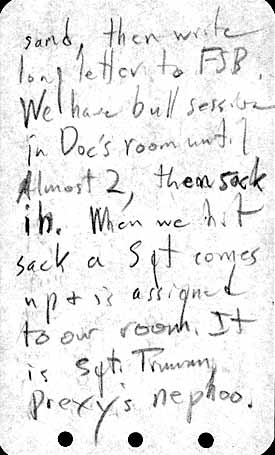 sand, then write
long letter to FSB.
We have bull session
in Doc's room until
Almost 2, then sack
in. When we hit
sack a Sgt comes
up + is assigned
to our room. It
is Sgt. Truman,
Prexy's nephoo.